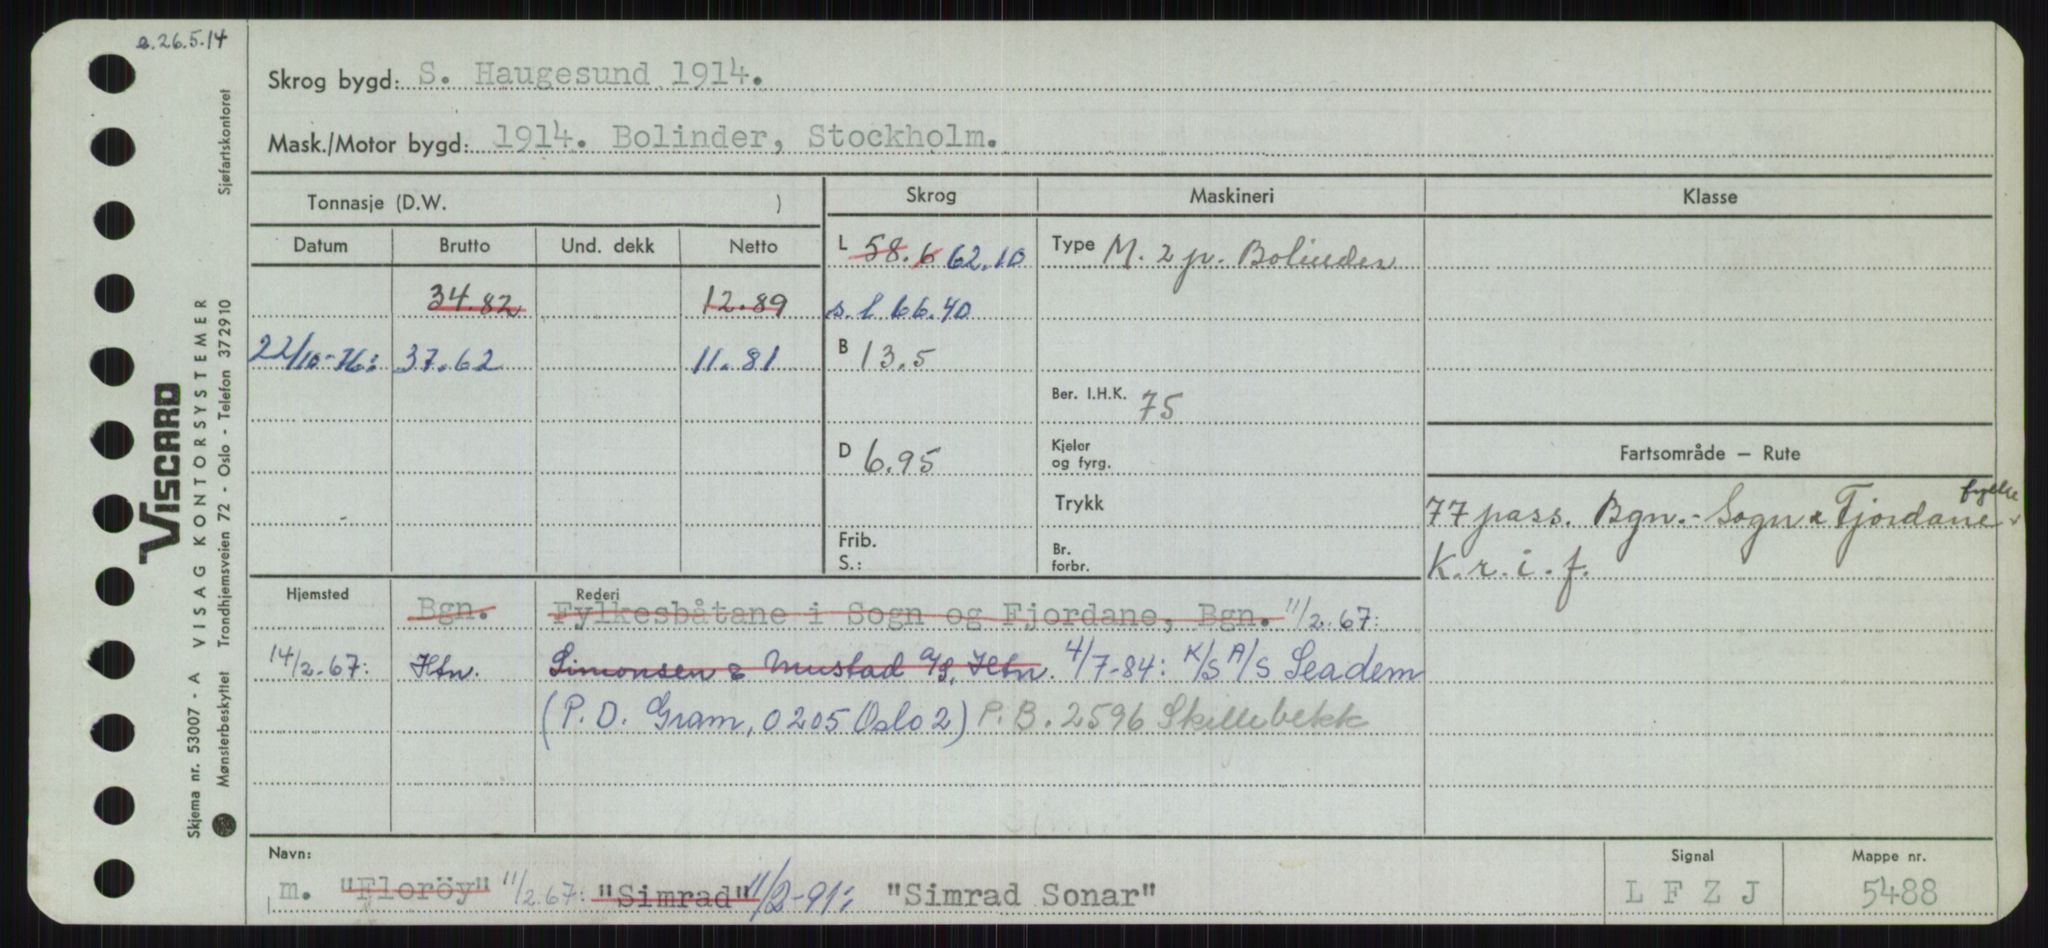 e.26.5.14
Skrog bygd: S. Haugesund 1914.
Mask./Motor bygd: 1914. Bolinder, Stockholm.
Tonnasje (D.W. )
Skrog
Maskineri
Klasse
Datum Brutto Und. dekk Netto
L 58.6 62.10
Type M. 2 p. Bolinder
34.82 12.89
s.l 66.40
22/10-76: 37.62 11.81
B 13.5
Ber. I.H.K. 75
D 6.95
Kjeler
og fyrg.
Trykk
Frib.
S.:
Br.
forbr.
Fartsområde – Rute
77 pass. Bgn.- Sogn & Fjordane fylke
K.r.i.f.
Hjemsted Bgn. Rederi Fylkesbåtane i Sogn og Fjordane, Bgn. 11/2.67:
14/2-67: Htn. Simonsen & Mustad A/S, Htn. 4/7-84: K/S A/S Seadem
(P.D. Gram, 0205 Oslo 2) P.B. 2596 Skillebekk
Navn:
m. "Floröy" 11/2.67: "Simrad" 11/2-91: "Simrad Sonar"
Signal
L F Z J
Mappe nr.
5488
VISCARD
Skjema nr. 53007 - A VISAG KONTORSYSTEMER
Mønsterbeskyttet Trondhjemsveien 72 - Oslo - Telefon 372910 Sjøfartskontoret